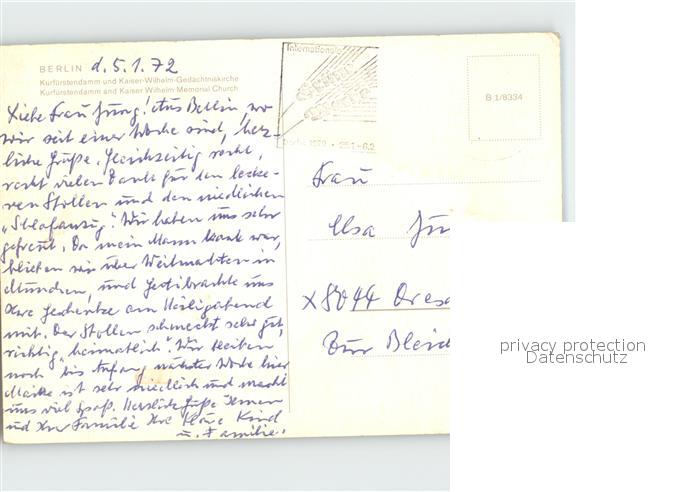 BERLIN d. 5.1.72
Kurfürstendamm und Kaiser-Wilhelm-Gedächtniskirche
Kurfürstendamm and Kaiser Wilhelm Memorial Church
Liebe Frau Jung! Aus Berlin, wo
wir seit einer Woche sind, herz-
liche Grüße. Gleichzeitig recht,
recht vielen Dank für den lecke-
ren Stollen und den niedlichen
„Schlafanzug". Wir haben uns sehr
gefreut. Da mein Mann krank war,
blieben wir über Weihnachten in
München, und
Ihre Geschenke am Heiligabend
mit. Der Stollen schmeckt sehr gut,
richtig „heimatlich". Wir bleiben
noch bis Anfang nächster Woche hier
ist sehr niedlich und macht
uns viel Spaß. Herzliche Grüße Ihnen
und Ihrer Familie Ihre Kind
u. Familie.
Internationale
B 1/8334
Frau
Elsa Ju
X 8044 Dres
Zur Bleic
privacy protection
Datenschutz